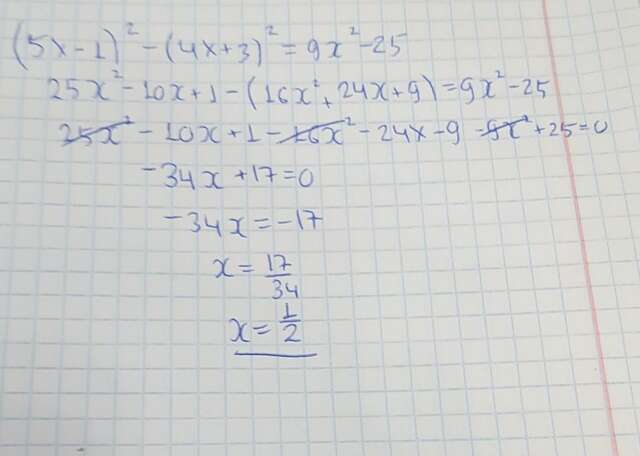 (5x-1)² - (4x+3)² = 9x² - 25
25x² - 10x + 1 - (16x² + 24x + 9) = 9x² - 25
25x² - 10x + 1 - 16x² - 24x - 9 - 9x² + 25 = 0
-34x + 17 = 0
-34x = -17
x = 17/34
x = 1/2